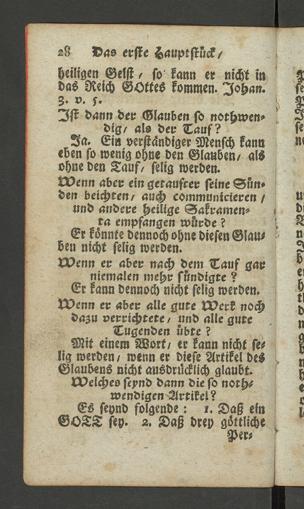 28 Das erste Hauptstück,
heiligen Geist, so kann er nicht in
das Reich GOttes kommen. Johan.
3. v. 5.
Ist dann der Glauben so nothwen-
dig, als der Tauf?
Ja. Ein verständiger Mensch kann
eben so wenig ohne den Glauben, als
ohne den Tauf, selig werden.
Wenn aber ein getaufter seine Sün-
den beichten, auch communicieren,
und andere heilige Sakramen-
ta empfangen würde?
Er könnte dennoch ohne diesen Glau-
ben nicht selig werden.
Wenn er aber nach dem Tauf gar
niemalen mehr sündigte?
Er kann dennoch nicht selig werden.
Wenn er aber alle gute Werk noch
dazu verrichtete, und alle gute
Tugenden übte?
Mit einem Wort, er kann nicht se-
lig werden, wenn er diese Artikel des
Glaubens nicht ausdrücklich glaubt.
Welches seynd dann die so noth-
wendigen Artikel?
Es seynd folgende: 1. Daß ein
GOTT sey. 2. Daß drey göttliche
Per-